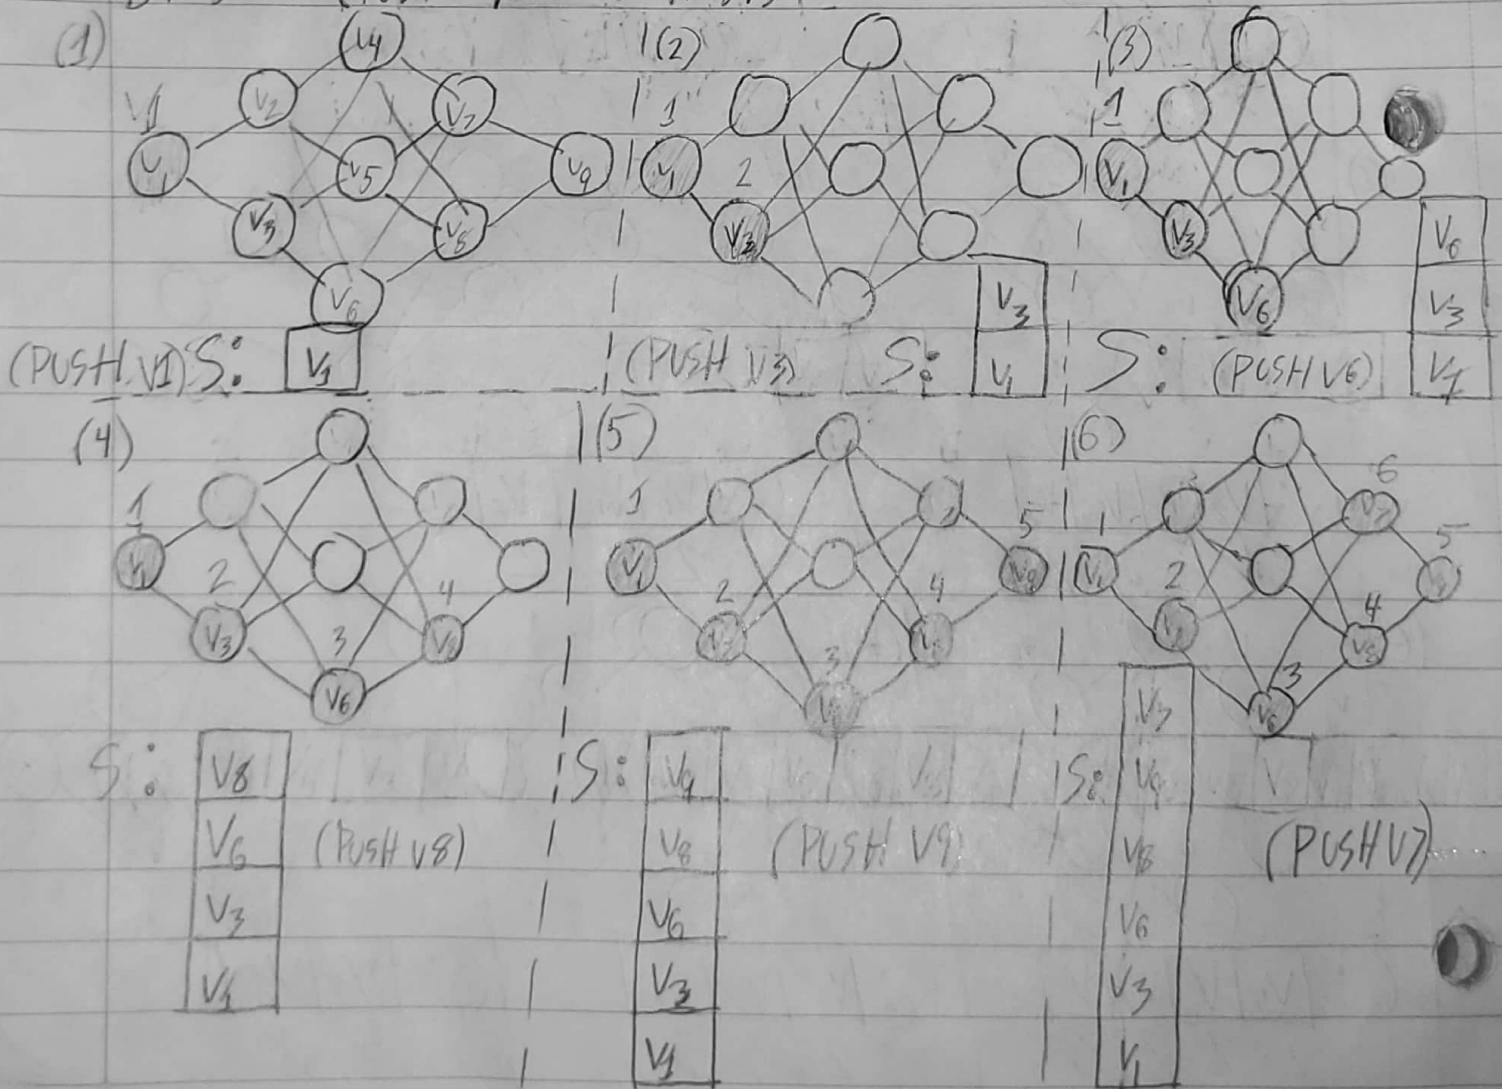 (1)
V4
V2
V7
V1
V1
V5
V9
V3
V8
V6
(PUSH V1) S:
V1
(2)
1
V1
2
V3
(PUSH V3) S:
V3
V1
(3)
1
V1
V3
V6
S: (PUSH V6)
V6
V3
V1
(4)
1
V1
2
V3
3
V6
4
V8
S:
V8
V6
V3
V1
(PUSH V8)
(5)
1
V1
2
V3
3
4
5
V9
S:
V9
V8
V6
V3
V1
(PUSH V9)
(6)
1
V1
2
3
V6
4
V8
5
V9
6
V7
S:
V9
V8
V6
V3
V1
(PUSH V7)